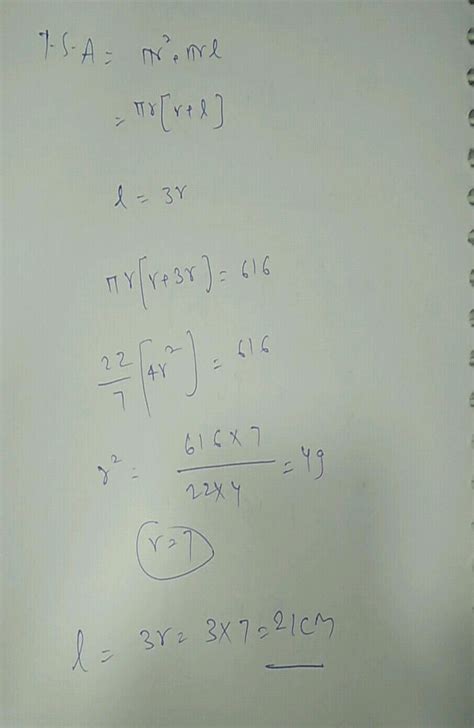 T.S.A = πr² + πrl
= πr[r+l]
l = 3r
πr[r+3r] = 616
22/7 [4r²] = 616
r² = 616×7/22×4 = 49
r=7
l = 3r = 3×7 = 21cm